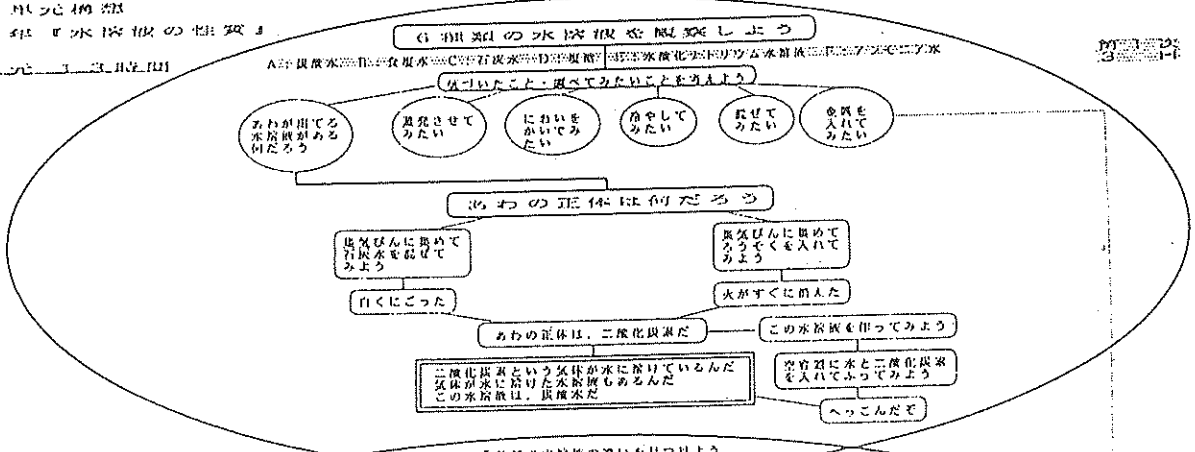 単元構想
年『水溶液の性質』
元 13時間
6種類の水溶液を観察しよう
第1次
3時
A…炭酸水…B…食塩水…C…石灰水…D…塩酸…E…水酸化ナトリウム水溶液…F…アンモニア水
気づいたこと・調べてみたいことを考えよう
あわが出てる
水溶液がある
何だろう
蒸発させて
みたい
においを
かいでみ
たい
冷やして
みたい
混ぜて
みたい
金属を
入れて
みたい
あわの正体は何だろう
集気びんに集めて
石灰水を混ぜて
みよう
集気びんに集めて
ろうそくを入れて
みよう
白くにごった
火がすぐに消えた
あわの正体は，二酸化炭素だ
この水溶液を作ってみよう
二酸化炭素という気体が水に溶けているんだ
気体が水に溶けた水溶液もあるんだ
この水溶液は，炭酸水だ
空容器に水と二酸化炭素
を入れてふってみよう
へっこんだぞ
水溶液の違いを見つけよう